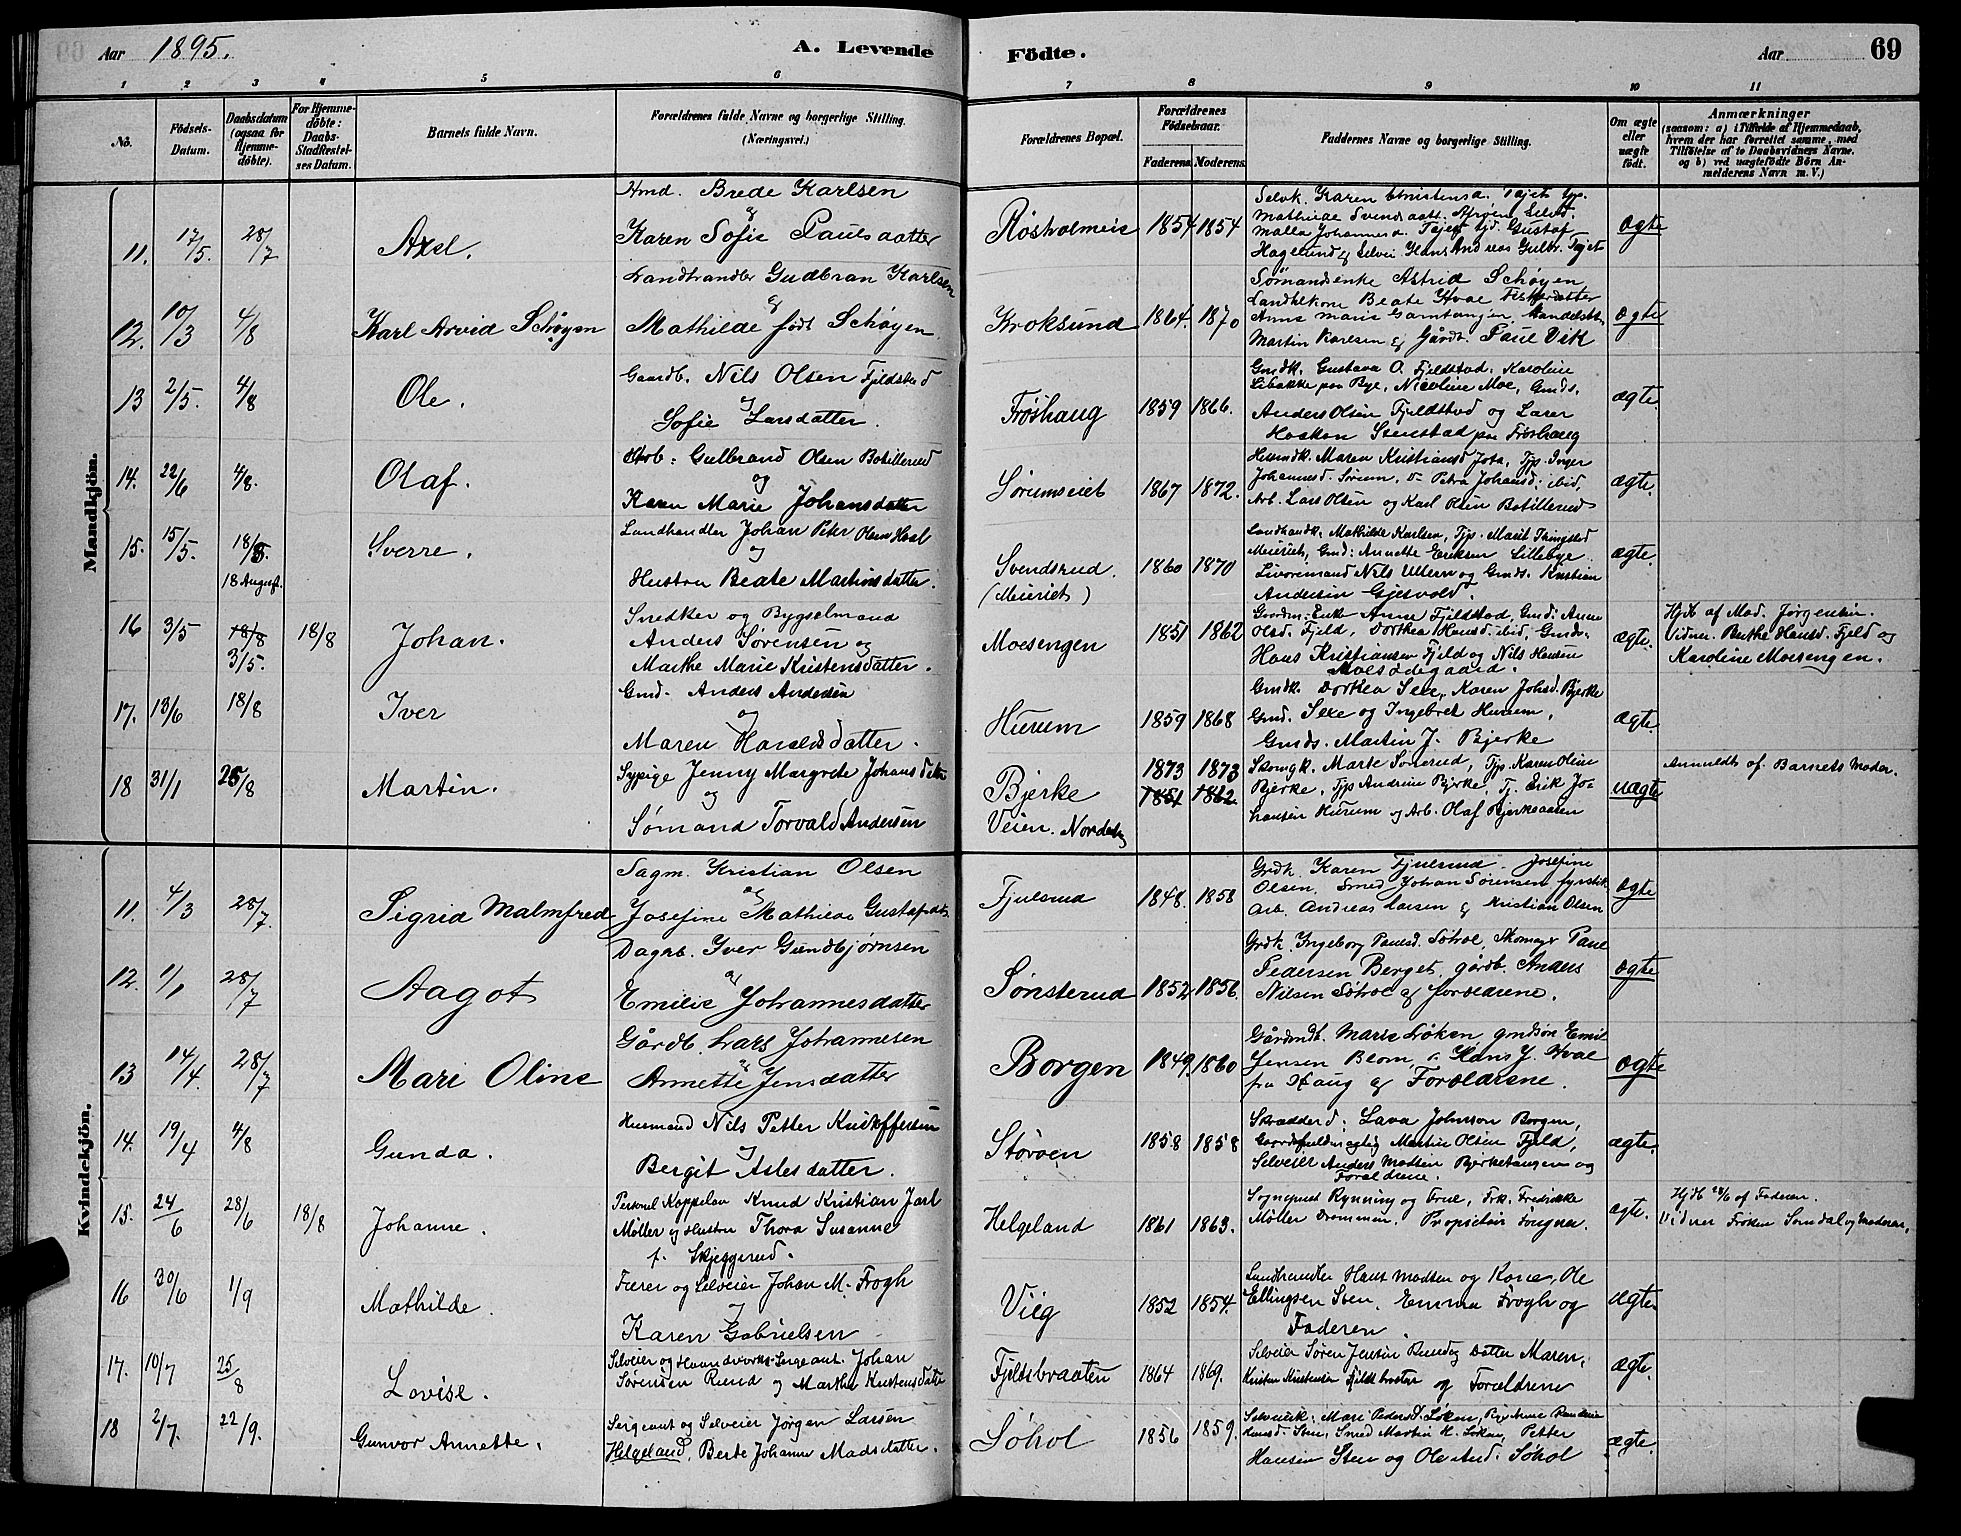 Aar 1895. A. Levende Födte. Aar 69
1 2 3 4 5 6 7 8 9 10 11
No.
Födsels-Datum.
Daabsdatum (ogsaa for Hjemmedöbte).
For Hjemmedöbte: Daabs-Stadfestelses Datum.
Barnets fulde Navn.
Forældrenes fulde Navne og borgerlige Stilling. (Næringsvei.)
Forældrenes Bopæl.
Forældrenes Födselsaar.
Faderens. Moderens.
Faddernes Navne og borgerlige Stilling.
Om ægte eller uægte födt.
Anmærkninger
(saasom: a) i Tilfælde af Hjemmedaab, hvem der har forrettet samme, med Tilföielse af to Daabsvidners Navne. og b) ved uægtefödte Börn Anmelderens Navn m. V.)
Mandkjön.
11. 17/5. 28/7 Axel.
Hmd. Brede Karlsen
og
Karen Sofie Paulsdatter
Røsholmeie 1854 1854
Selvk. Karen Christensd. Tajet
Mathilde Svendsdatt.
Malla Johannesd. Tajet Gustaf
Hagelund og Selvei Hans Andreas Gulbr. Tajet
ægte
12. 10/3 4/8 Karl Arvid Schøyen
Landhandler Gudbran Karlsen
og
Mathilde født Schøyen.
Kroksund 1864. 1870
Sømandsenke Astrid Schøyen
Landhkone Beate Hval
Anne Marie
Martin Karlsen og Gårdb. Paul Vik
ægte
13 2/5. 4/8 Ole.
Gaardb. Nils Olsen Fjeldstad
og
Sofie Larsdatter.
Frøshaug 1859 1866.
Gmdk. Gustava O. Fjeldstad. Karoline
Libakke paa Bye, Nicoline Moe, Gmds.
Anders Olsen Fjeldstad og Lærer
Haakon Stenstad paa Frøshaug
ægte.
14. 22/6 4/8. Olaf.
Gulbrand Olsen Botillerud
og
Karen Marie Johansdatter
Sørumseiet 1867 1872.
Husmdk. Maren Kristiansd Jota, Tjp. Inger
Johannesd. Sørum, Petra Johansd. ibid,
Arb. Lars Olsen og Karl Olsen Botillerud
ægte.
15. 15/5. 18/8. 18 August. Sverre.
Landhandler Johan Peter Olsen Hval
og
Hustru Beate Martinsdatter.
Svendsrud. (Meieriet) 1860 1870
Landhandk. Mathilde Karlsen, Tjp. Marit Thingstad
Meieriet, Gmd: Annette Eriksen Lillebye.
Nils Ullern og Gmds. Kristian
Andersen Gjesvold.
ægte.
16 3/5 18/8 3/5. 18/8 Johan.
Snedker og Bygselmand
Anders Sørensen og
Marthe Marie Kristensdatter.
Moesengen 1851 1862
Enke Anne Fjeldstad, Gmd: Anne
Olsd. Fjeld, Dorthea Hansd. ibid, Gmds.
Hans Kristiansen Fjeld og Nils Hansen
Moesødegaard.
ægte.
Hjdt af Mad. Jørgensen.
Vidner. Berthe Hansd. Fjeld og
Karoline Moesengen.
17. 13/6 18/8 Iver
Gmd. Anders Andersen
og
Maren Haraldsdatter.
Hurum 1859 1868
Gmdk. Dorthea Sexe, Karen Johsd. Bjerke
Gmd. Sexe og Ingebret Hurum,
Gmds. Martin J. Bjerke
ægte.
18 31/1 25/8 Martin.
Sypige Jenny Margrete Johansdatter
og
Sømand Torvald Andersen
Bjerke
Veien. Norderhov
1873 1873
1851 1862
Skomgk. Marte Sønerud, Tjp. Karen Oline
Bjerke, Tjp Andrine Bjerke, Tj. Erik Jo-
hansen Hurum og Arb. Olaf Bjerkeaasen
uægte
Anmeldt af Barnets Moder.
Kvindekjön.
11. 4/3 28/7. Sigrid Malmfred
Sagm. Kristian Olsen
og
Josefine Mathilde Gustafsdt.
Fjulsrud 1848. 1858
Grdk. Karen Fjulsrud. Josefine
Olsen, Smed Johan Sørensen fyrstik
Arb. Andreas Larsen og Kristian Olsen
ægte
12. 1/1 28/7 Aagot
Dagarb. Iver Gundbjørnsen
og
Emilie Johannesdatter
Sønsterud 1852 1856.
Grdk. Ingeborg Paulsd. Søhol, Skomager Paul
Pedersen Berget, gårdb. Anders
Nilsen Søhol og forældrene.
ægte
13 14/4. 28/7 Mari Oline
Gårdb. Lars Johannesen
og
Annette Jensdatter
Borgen 1849. 1860
Gårdmdt. Marie Løken, gmdsøn Emil
Jensen Blom, Hans J. Hval
fra Haug og Forældrene.
ægte
14. 19/4 4/8 Gunda.
Husmand Nils Petter Kristoffersen
og
Bergit Aslesdatter.
Støvoen 1858 1858
Skrædderd: Lava Johnson Borgen,
Gaardsfuldmægtig Martin Olsen Fjeld,
Selveier Anders Madsen Bjerketangen og
Forældrene.
ægte.
15. 24/6 28/6 18/8 Johanne.
Personel Kappelan Knud Kristian Jarl
Møller og Hustru Thora Susanne
f. Skjeggerud.
Helgeland 1861 1863.
Sogneprest Rynning og Frue, Frk. Fredrikke
Møller Drammen. Proprietær Fougner.
ægte.
Hjdt 28/6 af Faderen.
Vidner Frøken Somdal og Moderen.
16 30/6 1/9 Mathilde.
Lærer og Selveier Johan M. Frogh
og
Karen Gabrielsen
Viig 1852 1854.
Landhandler Hans Madsen og Kone, Ole
Ellingsen Sten, Emma Frogh og
Faderen.
ægte.
17. 10/7 25/8 Lovise.
Selveier og Haandværks-Sergeant. Johan
Sørensen Rund og Marthe Kristensdatter
Fjeldsbraaten 1864 1869.
Selveier Søren Jensen Rund og Datter Maren,
Kristen Kristensen Fjeldsbraaten og Forældrene
ægte.
18 2/7. 22/9. Gunvor Annette.
Sergeant og Selveier Jørgen Larsen
Helgeland, Berte Johanne Madsdatter.
Søhol 1856 1859.
Selveierk. Mari Pedersd. Løken,
Sten, Smed Martin H. Løken, Petter
Hansen Sten og Ole And. Søhol
ægte.